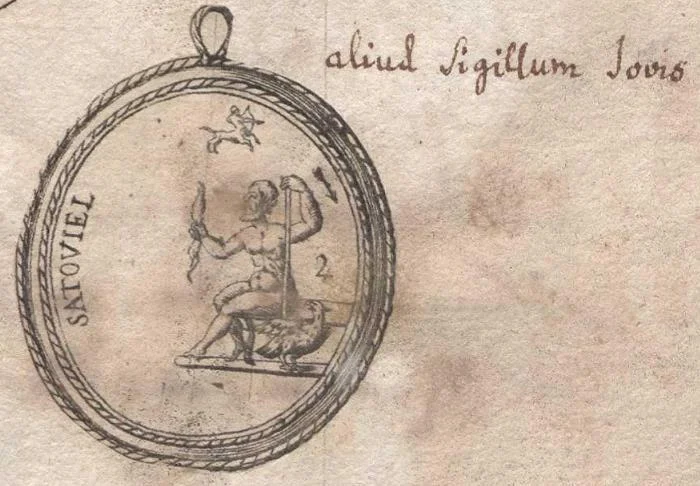 aliud Sigillum Jovis
SATOVIEL